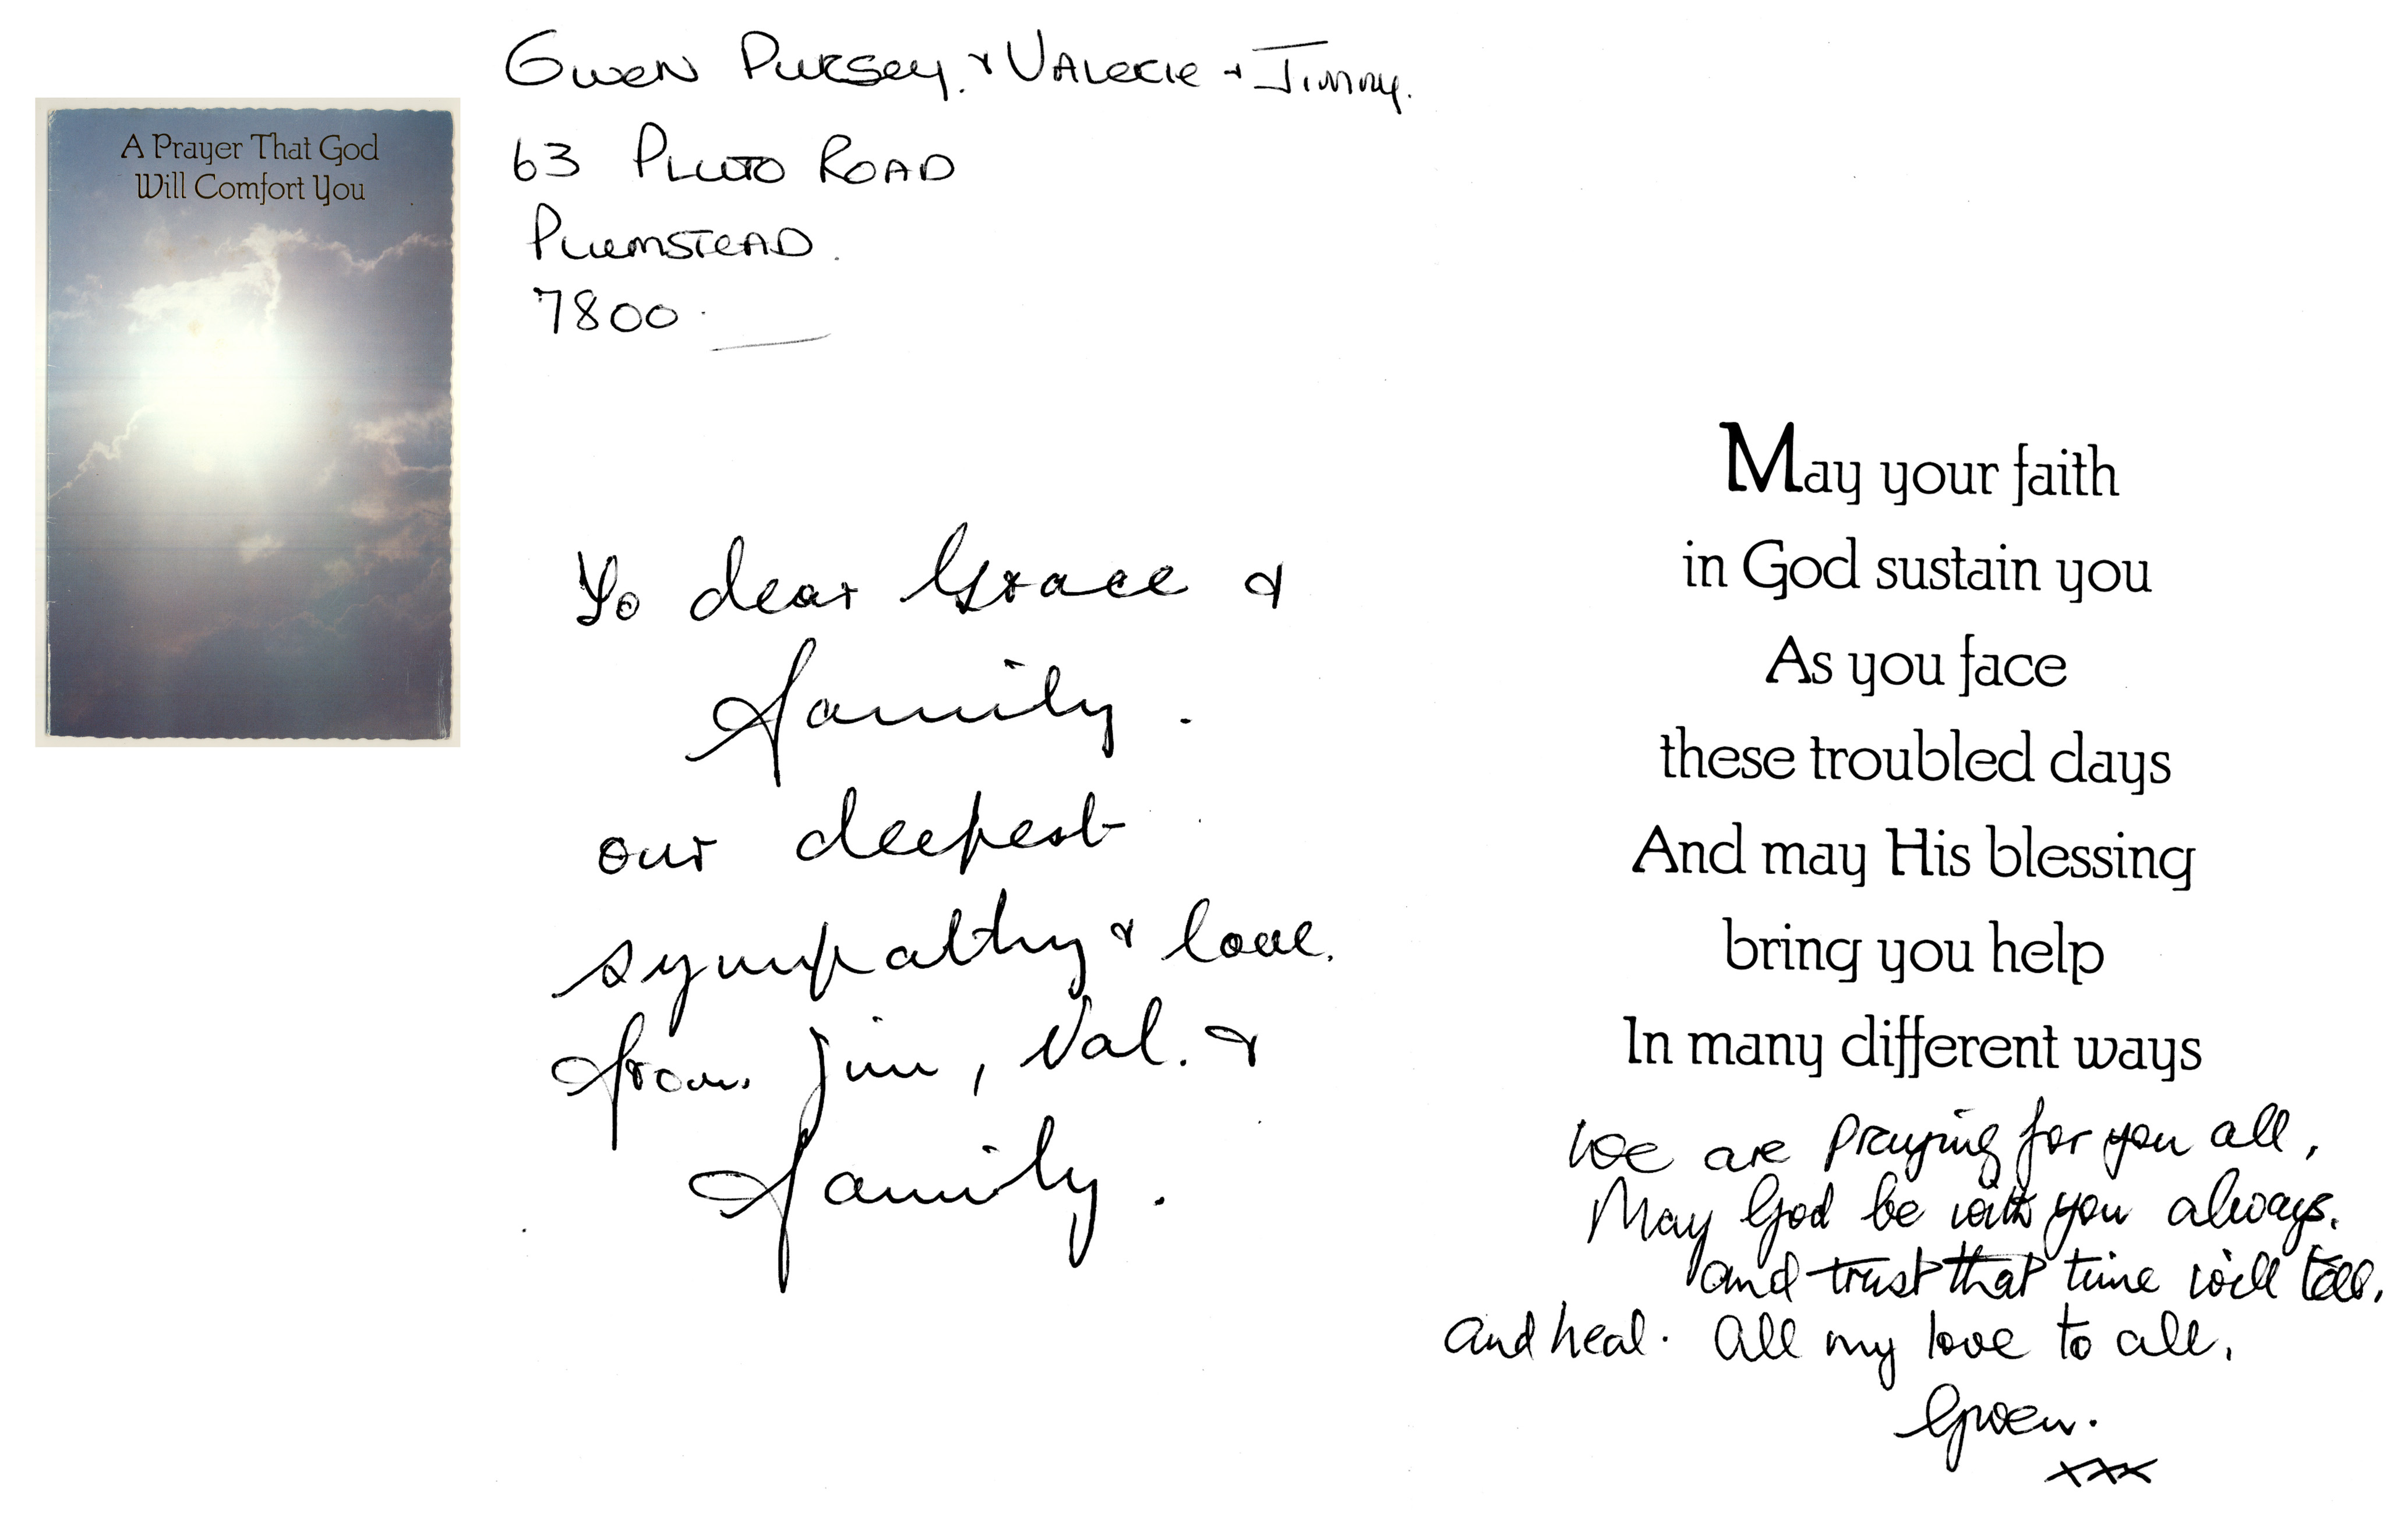 A Prayer That God
Will Comfort You
Gwen Pursey. & Valerie + Jimmy.
63 Pluto Road
Plumstead.
7800.
To dear Grace &
family.
our deepest
sympathy & love.
from Jim, Val. &
family.
May your faith
in God sustain you
As you face
these troubled days
And may His blessing
bring you help
In many different ways
We are praying for you all,
May God be with you always.
and trust that time will tell,
and heal. All my love to all,
Gwen.
xxx